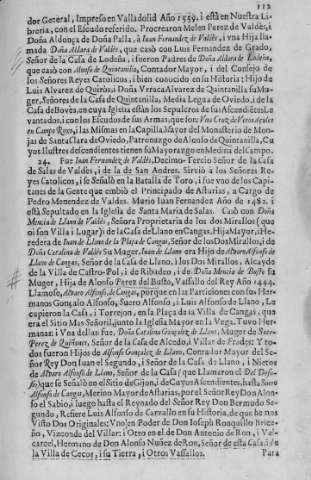 112
dor General, Impreso en Valladolid Año 1559. i està en Nuestra Libreria, con el Escudo referido. Procrearon Melen Perez de Valdès, i
Doña Aldonça de Doña Palla, à Iuan Fernandez de Valdès, i vna Hija llamada
Doña Aldara de Valdès, que casò con Luis Fernandez de Grado,
Señor de la Casa de Lodeña, i fueron Padres de Doña Aldara de Lodeña,
que casò con Alonso de Quintanilla, Contador Mayor, i del Consejo de
los Señores Reyes Catolicos, i bien conocido en su Historia: Hijo de
Luis Alvarez de Quiròs, i Doña Vrraca Alvarez de Quintanilla su Muger,
Señores de la Casa de Quintanilla, Media Legua de Oviedo, i de la
Casa de Boves, en cuya Iglesia estàn los Sepulcros de sus Ascendientes, Levantados,
i con los Escudos de sus Armas, que son: Vna Cruz de Veros Açules
en Campo Roxo, i las Mismas en la Capilla Mayor del Monasterio de Monjas
de Santa Clara de Oviedo, Patronazgo de Alonso de Quintanilla, Cuyos
Ilustres descendientes tienen su Mayorazgo en Medina del Campo.
24. Fue Iuan Fernandez de Valdès, Decimo-Tercio Señor de la Casa
de Salas de Valdès, i de la de San Andres. Sirviò à los Señores Reyes
Catolicos, i se Señalò en la Batalla de Toro, i fue vno de los Capitanes
de la Gente que embiò el Principado de Asturias, a Cargo de
Pedro Menendez de Valdes. Murio Iuan Fernandez Año de 1482. i
està Sepultado en la Iglesia de Santa Maria de Salas. Casò con Doña
Mencia de Llano de Valdès, Señora Proprietaria de los dos Mirallos (que
oi son Villa i Lugar) i de la Casa de Llano en Cangas, Hija Mayor, i Heredera
de Iuan de Llano de la Plaça de Cangas, Señor de los Dos Mirallos, i de
Doña Catalina de Valdès Su Muger. Iuan de Llano era Hijo de Alvaro Alfonso de
Llano de Cangas, Señor de la Casa de Llano, i los Dos Mirallos, Alcayde
de la Villa de Castro-Pol, i de Ribadeo, i de Doña Mencia de Busto su
Muger, Hija de Alonso Perez del Busto, Vassallo del Rey Año 1444.
Llamose, Alvaro Alfonso de Cangas, porque en las Particiones con sus Hermanos
Gonçalo Alfonso, Suero Alfonso, i Luis Alfonso de Llano, Le
cupieron la Casa, i Torrejon, en la Plaça de la Villa de Cangas, que
era el Sitio Mas Señoril, junto la Iglesia Mayor en la Vega. Tuvo Hermanas:
i Vna dellas fue, Doña Catalina Gonçalez de Llano, Muger de Suero
Perez de Quiñones, Señor de la Casa de Alcedo, i Villar de Frades: Y todos
fueron Hijos de Alfonso Gonçalez, de Llano, Contalor Mayor del Señor
Rey Don Iuan el Segundo, i Señor de la Casa de Llano, i Nieto
de Alvaro Alfonso de Llano, Señor de la Casa (que Llamaron el Del Desafio)
que se Señalò en el Sitio de Gijon, i de Cuyos Ascendientes, hasta Suero
Alfonso de Cangas, Merino Mayor de Asturias, por el Señor Rey Don Alonso
el Sabio, i luego hasta el Reynado del Señor Rey Don Bermudo Segundo,
Refiere Luis Alfonso de Carvallo en su Historia, de que he nos
Visto Dos Originales: Vno en Poder de Don Ioseph Ronquillo Briceño,
Vizconde del Villar: i Otro en el de Don Antonio de Ron, i Valcarcel,
Hermano de Don Alonso Nuñez de Ron, Señor de esta Casa i de
la Villa de Cecos, i su Tierra, i Otros Vassallos.
Para